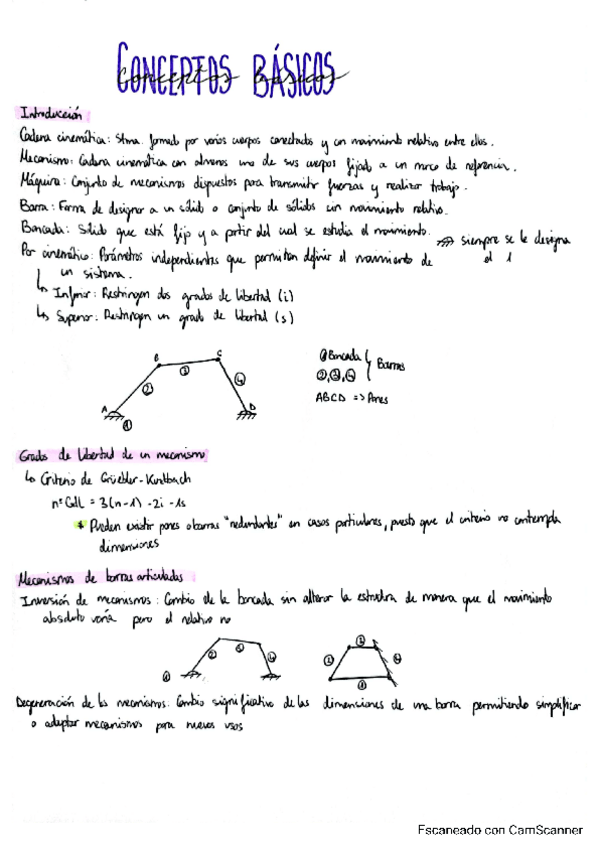 CONCEPTOS BÁSICOS
Conceptos básicos
Introducción:
Cadena cinemática: Stma. formado por varios cuerpos conectados y con movimiento relativo entre ellos.
Mecanismo: Cadena cinemática con almenos uno de sus cuerpos fijado a un marco de referencia.
Máquina: Conjunto de mecanismos dispuestos para transmitir fuerzas y realizar trabajo.
Barra: Forma de designar a un sólido o conjunto de sólidos sin movimiento relativo.
Bancada: Sólido que está fijo y a partir del cual se estudia el movimiento. siempre se le designa
el 1
Par cinemático: Parámetros independientes que permiten definir el movimiento de
un sistema.
Inferior: Restringen dos grados de libertad (i)
Superior: Restringen un grado de libertad (s)
B C
3
2 4
A D
1
1 Bancada
2, 3, 4 Barras
ABCD => Pares
Grados de libertad de un mecanismo
Criterio de Grüebler-Kutzbach
nº GdL = 3(n-1) -2i -1s
* Pueden existir pares o barras "redundantes" en casos particulares, puesto que el criterio no contempla
dimensiones
Mecanismos de barras articuladas
Inversión de mecanismos: Cambio de la bancada sin alterar la estructura de manera que el movimiento
absoluto varía pero el relativo no
2 3 4
1
Degeneración de los mecanismos: Cambio significativo de las dimensiones de una barra permitiendo simplificar
o adaptar mecanismos para nuevos usos
Escaneado con CamScanner